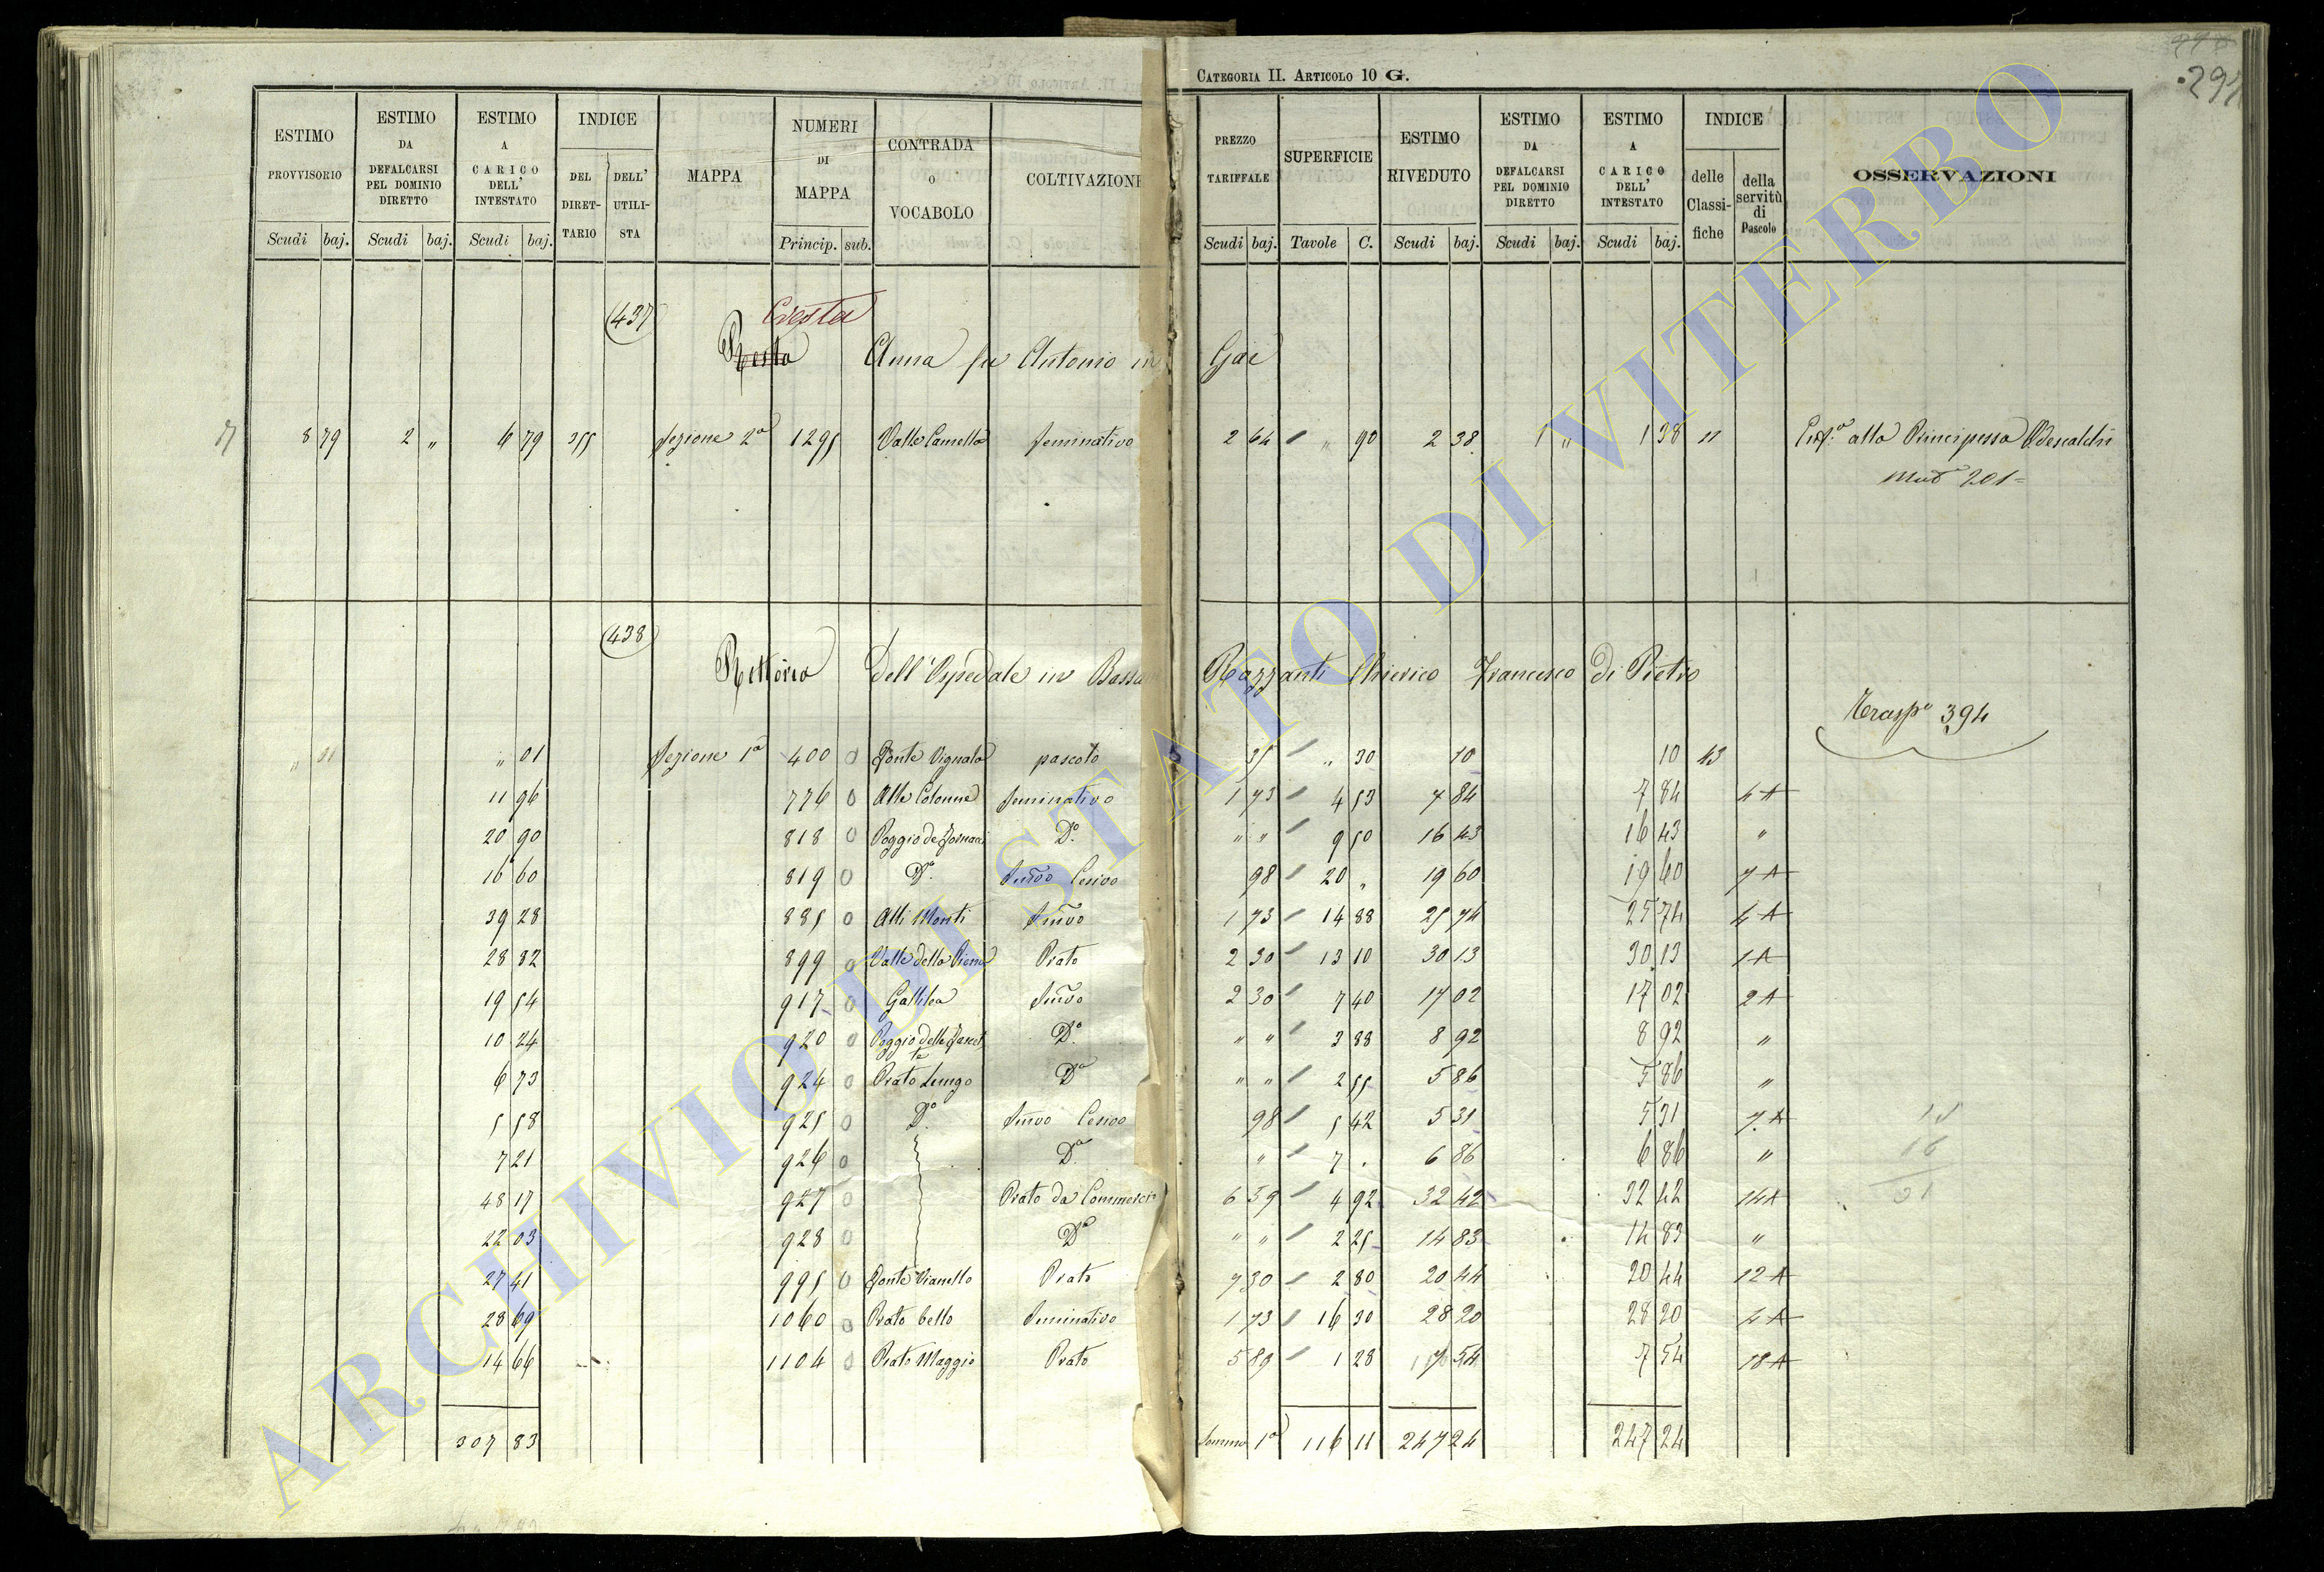 CATEGORIA II. ARTICOLO 10 G.
297
ESTIMO PROVVISORIO Scudi baj.
ESTIMO DA DEFALCARSI PEL DOMINIO DIRETTO Scudi baj.
ESTIMO A CARICO DELL' INTESTATO Scudi baj.
INDICE DEL DIRETTARIO DELL' UTILISTA
MAPPA
NUMERI DI MAPPA Princip. sub.
CONTRADA O VOCABOLO
COLTIVAZIONE
PREZZO TARIFFALE Scudi baj.
SUPERFICIE Tavole C.
ESTIMO RIVEDUTO Scudi baj.
ESTIMO DA DEFALCARSI PEL DOMINIO DIRETTO Scudi baj.
ESTIMO A CARICO DELL' INTESTATO Scudi baj.
INDICE delle Classifiche della servitù di Pascolo
OSSERVAZIONI
437
Cresta
Resta Anna fu Antonio in Gai
8 79 2 " 6 79 355 Sezione 2ª 1295 Valle Camella Seminativo 2 64 " 90 2 38 1 " 1 38 11 Enf.ª alla Principessa Odescalchi
Mod 201=
438
Rettoria Dell'Ospedale in Bassano Razzanti Chierico Francesco di Pietro
Trasp.º 394
" 01 " 01 Sezione 1ª 400 0 Fonte Vignala pascolo 35 " 30 10 10 13
11 96 776 0 Alle Colonne Seminativo 1 73 4 53 7 84 7 84 4 A
20 90 818 0 Poggio de Fornaci Dº " " 9 50 16 43 16 43 "
16 60 819 0 Dº Semvo Cesivo 98 20 " 19 60 19 60 7 A
39 28 885 0 Alli Monti Semvo 1 73 14 88 25 74 25 74 4 A
28 82 899 0 Valle della Piena Prato 2 30 13 10 30 13 30 13 1 A
19 54 917 0 Gallilea Semvo 2 30 7 40 17 02 17 02 2 A
10 24 920 0 Poggio delle Dº " " 3 88 8 92 8 92 "
6 73 924 0 Prato Lungo Dº " " 2 55 5 86 5 86 "
5 58 925 0 Dº Semvo Cesivo 98 5 42 5 31 5 31 7 A
7 21 926 0 Dº " 7 . 6 86 6 86 "
48 17 927 0 Prato da Commercio 6 59 4 92 32 42 32 42 14 A
22 03 928 0 Dº " " 2 25 14 83 14 83 "
27 41 995 0 Fonte Vianello Prato 7 30 2 80 20 44 20 44 12 A
28 69 1060 0 Prato bello Seminativo 1 73 16 30 28 20 28 20 4 A
14 66 1104 0 Prato Maggio Prato 5 89 1 28 7 54 7 54 18 A
307 83 Somma 1ª 116 11 247 24 247 24
15
16
31
ARCHIVIO DI STATO DI VITERBO